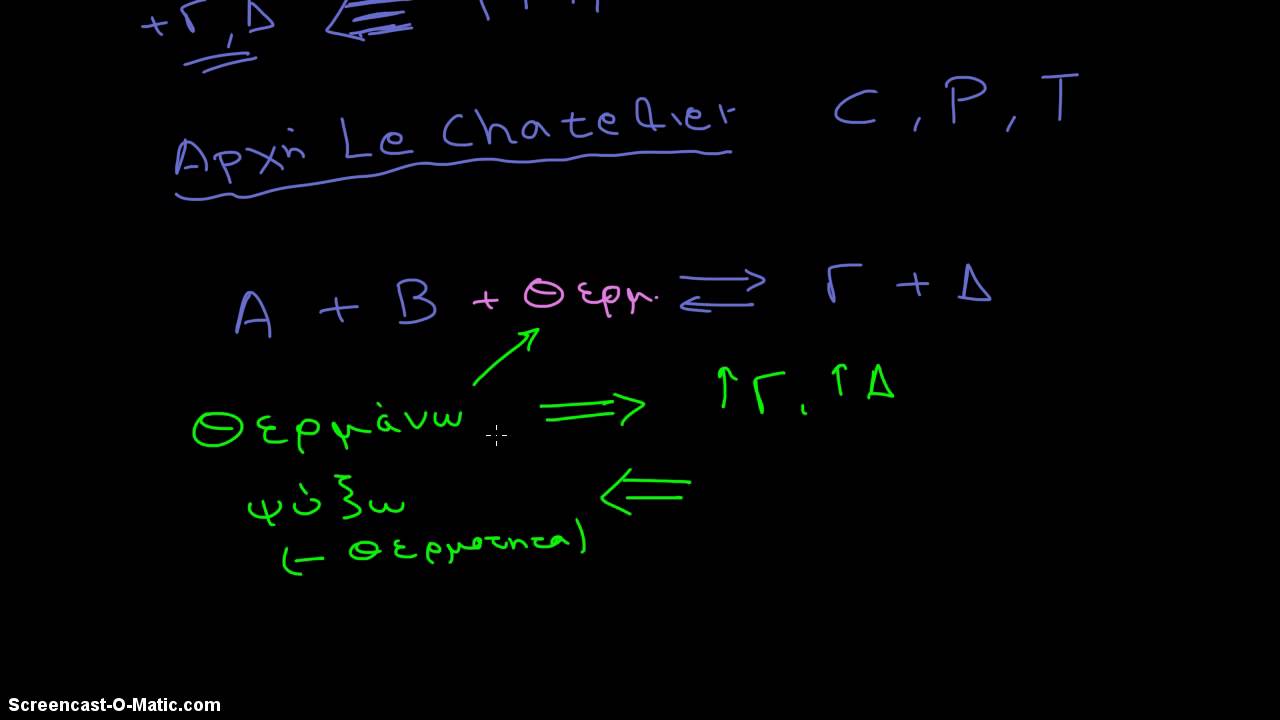 + Γ, Δ ⇐
Αρχή Le Chatelier C, P, T
A + B + Θερμ. ⇄ Γ + Δ
Θερμάνω ⇒ ↑Γ, ↑Δ
ψύξω ⇐
(- Θερμοτητα)
Screencast-O-Matic.com